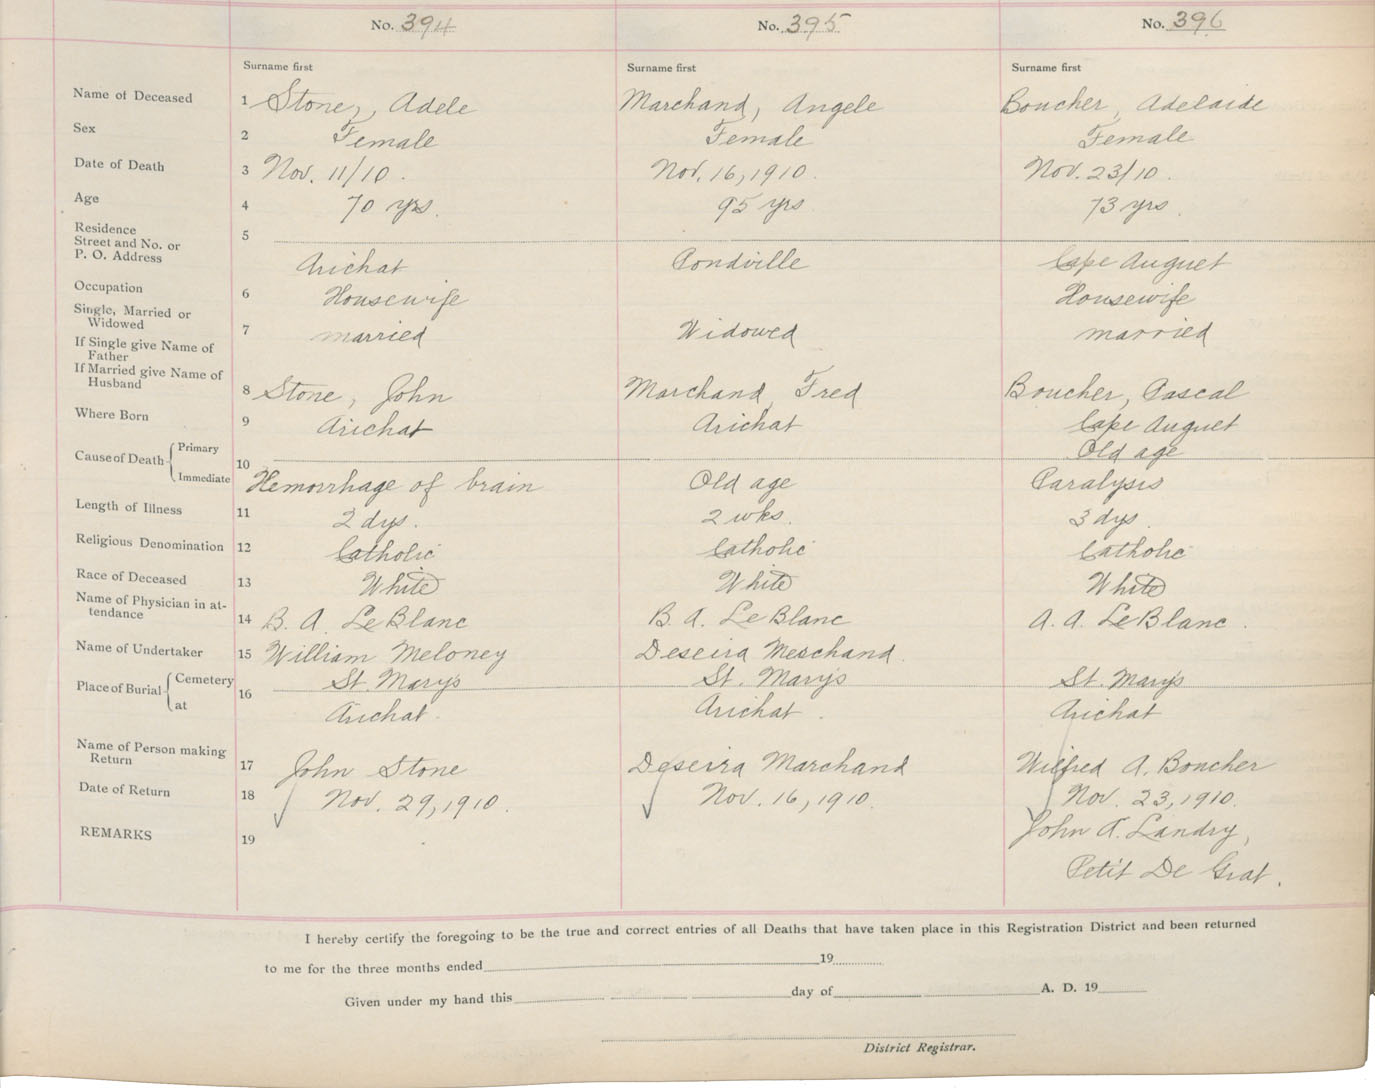 No. 394 No. 395 No. 396
Surname first Surname first Surname first
Name of Deceased 1 Stone, Adele Marchand, Angele Boucher, Adelaide
Sex 2 Female Female Female
Date of Death 3 Nov. 11/10. Nov. 16, 1910. Nov. 23/10.
Age 4 70 yrs. 95 yrs 73 yrs.
Residence
Street and No. or 5
P. O. Address Arichat Pondville Cape Auguet
Occupation 6 Housewife Housewife
Single, Married or
Widowed 7 married Widowed married
If Single give Name of
Father
If Married give Name of
Husband 8 Stone, John Marchand, Fred Boucher, Pascal
Where Born 9 Arichat Arichat Cape Auguet
Cause of Death Primary 10 Old age
Immediate Hemorrhage of brain Old age Paralysis
Length of Illness 11 2 dys. 2 wks. 3 dys.
Religious Denomination 12 Catholic Catholic Catholic
Race of Deceased 13 White White White
Name of Physician in at-
tendance 14 B. A. LeBlanc B. A. LeBlanc A. A. LeBlanc.
Name of Undertaker 15 William Meloney Deseira Merchand.
Place of Burial Cemetery 16 St. Mary's St. Mary's St. Mary's
at Arichat. Arichat. Arichat
Name of Person making
Return 17 John Stone Deseira Marchand Wilfred A. Boucher
Date of Return 18 Nov. 29, 1910. Nov. 16, 1910. Nov. 23, 1910.
REMARKS 19 John A. Landry,
Petit De Grat.
I hereby certify the foregoing to be the true and correct entries of all Deaths that have taken place in this Registration District and been returned
to me for the three months ended 19
Given under my hand this day of A. D. 19
District Registrar.